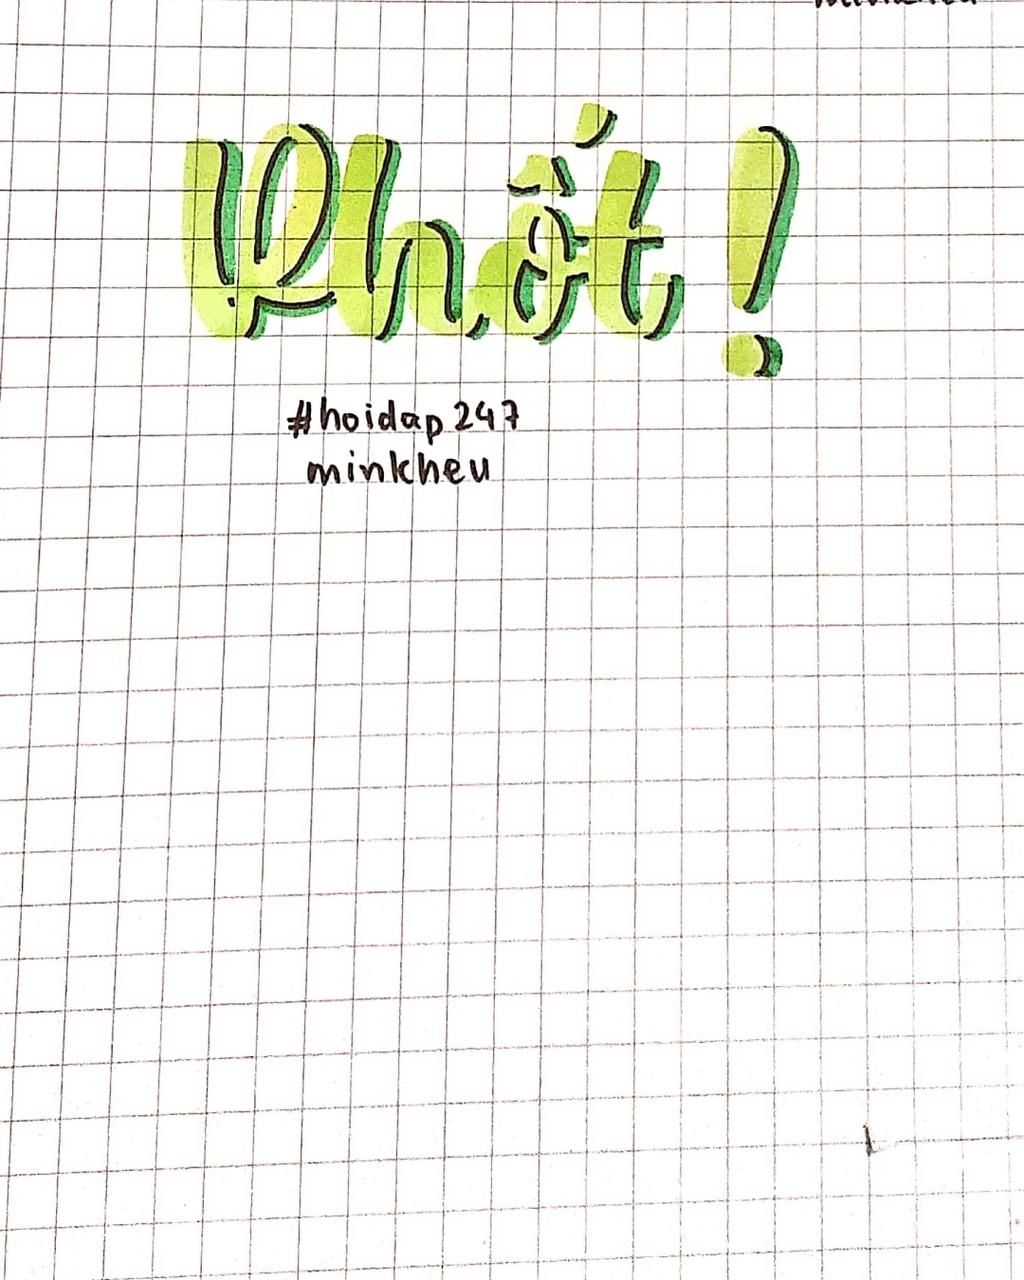 Phốt!
#hoidap247
minkheu